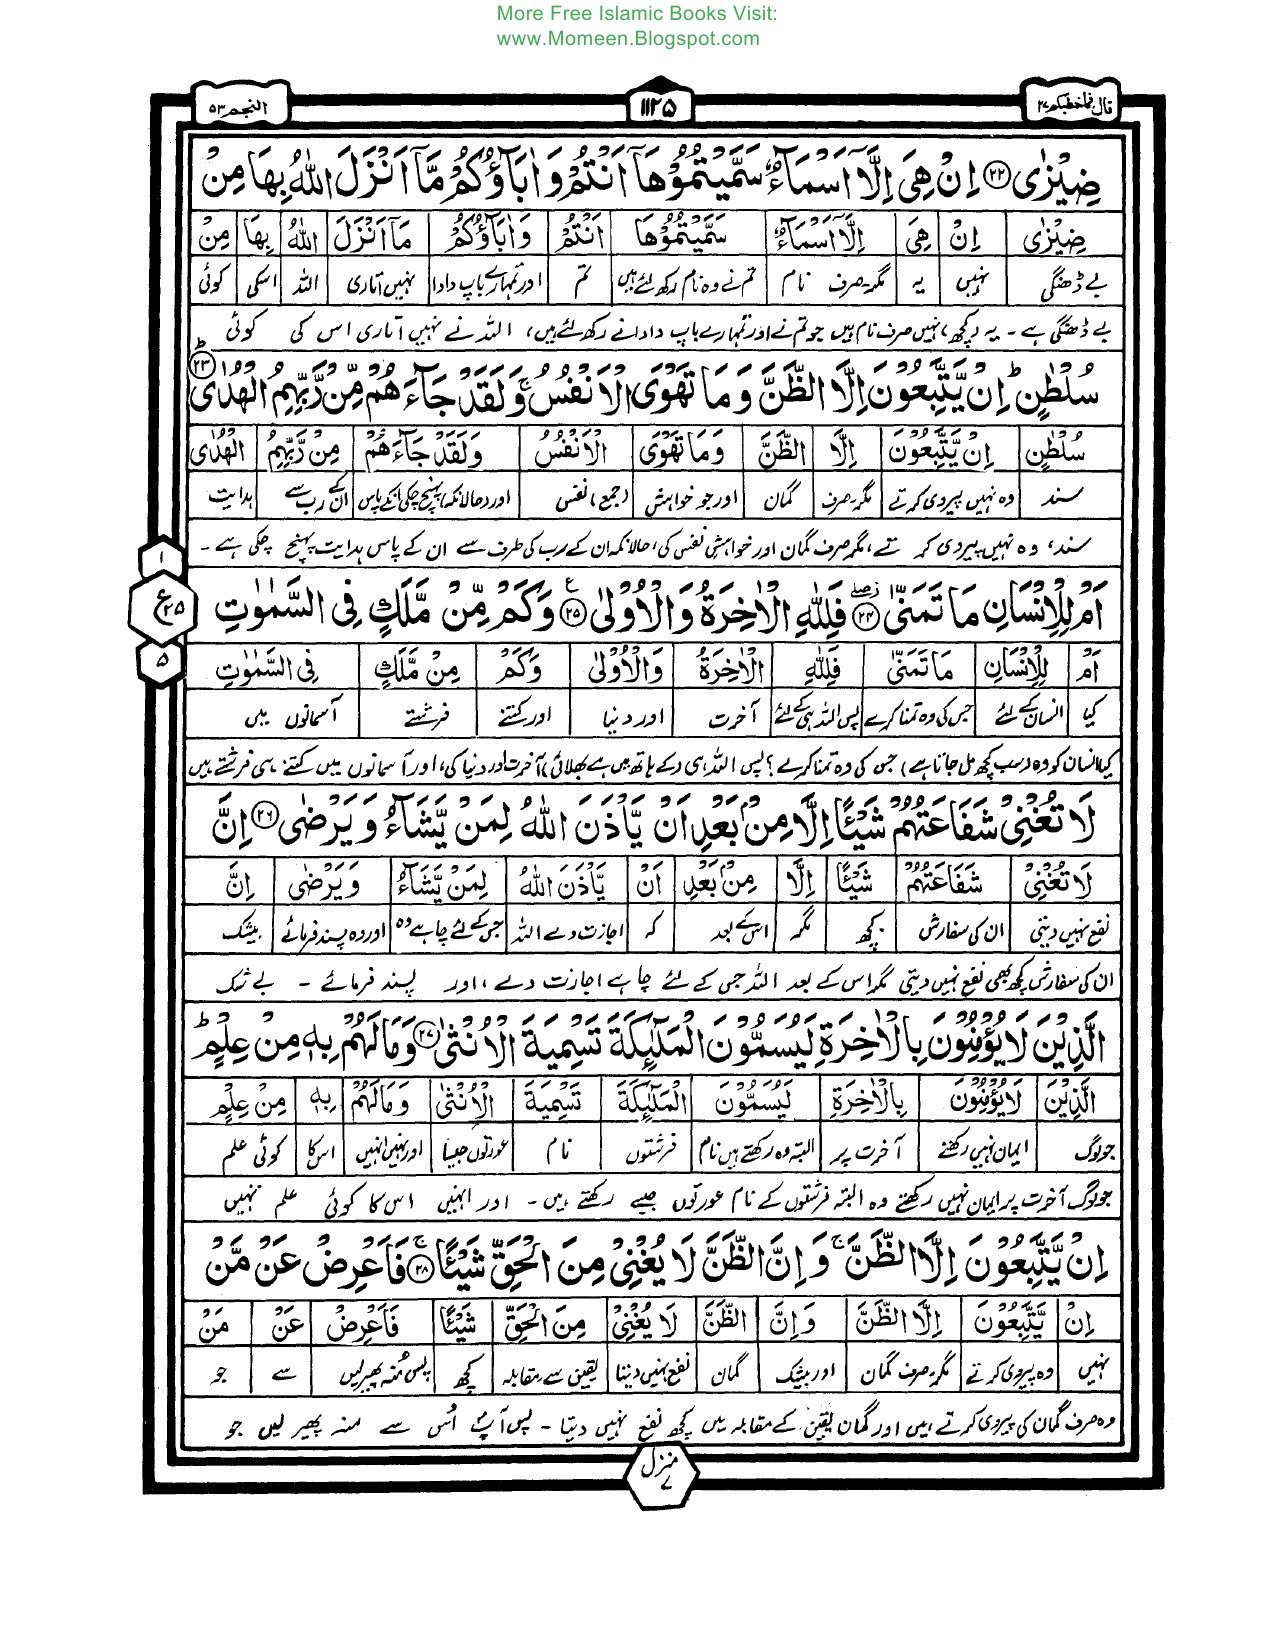 More Free Islamic Books Visit:
www.Momeen.Blogspot.com
قال فما خطبکم ۲۷
۱۱۲۵
النجم ۵۳
ضِيْزٰى ۲۲ اِنْ هِىَ اِلَّاۤ اَسْمَآءٌ سَمَّيْتُمُوْهَاۤ اَنْتُمْ وَاٰبَآؤُكُمْ مَّاۤ اَنْزَلَ اللّٰهُ بِهَا مِنْ
ضِيْزٰى اِنْ هِىَ اِلَّاۤ اَسْمَآءٌ سَمَّيْتُمُوْهَاۤ اَنْتُمْ وَاٰبَآؤُكُمْ مَاۤ اَنْزَلَ اللّٰهُ بِهَا مِنْ
بے ڈھنگی نہیں یہ مگر صرف نام تم نے وہ نام رکھ لئے ہیں تم اور تمہارے باپ دادا نہیں اتاری اللہ اسکی کوئی
بے ڈھنگی ہے۔ یہ (کچھ) نہیں صرف نام ہیں جو تم نے اور تمہارے باپ دادا نے رکھ لئے ہیں، اللہ نے نہیں اتاری اس کی کوئی
سُلْطٰنٍ ؕ اِنْ يَّتَّبِعُوْنَ اِلَّا الظَّنَّ وَمَا تَهْوَى الْاَنْفُسُ ۚ وَلَقَدْ جَآءَهُمْ مِّنْ رَّبِّهِمُ الْهُدٰى ؕ ۲۳
سُلْطٰنٍ اِنْ يَّتَّبِعُوْنَ اِلَّا الظَّنَّ وَمَا تَهْوَى الْاَنْفُسُ وَلَقَدْ جَآءَهُمْ مِنْ رَّبِّهِمُ الْهُدٰى
سند وہ نہیں پیروی کرتے مگر صرف گمان اور جو خواہش (جمع) نفس اور حالانکہ پہنچ چکی انکے پاس ان کے رب سے ہدایت
سند، وہ نہیں پیروی کرتے، مگر صرف گمان اور خواہشِ نفس کی، حالانکہ ان کے رب کی طرف سے ان کے پاس ہدایت پہنچ چکی ہے۔
۱
ع ۲۵
۵
اَمْ لِلْاِنْسَانِ مَا تَمَنّٰى ۲۴ فَلِلّٰهِ الْاٰخِرَةُ وَالْاُوْلٰى ۲۵ وَكَمْ مِّنْ مَّلَكٍ فِى السَّمٰوٰتِ
اَمْ لِلْاِنْسَانِ مَا تَمَنّٰى فَلِلّٰهِ الْاٰخِرَةُ وَالْاُوْلٰى وَكَمْ مِنْ مَّلَكٍ فِى السَّمٰوٰتِ
کیا انسان کے لئے جس کی وہ تمنا کرے پس اللہ ہی کے لئے آخرت اور دنیا اور کتنے فرشتے آسمانوں میں
کیا انسان کو وہ (سب کچھ مل جاتا ہے) جس کی وہ تمنا کرے؟ پس اللہ ہی (کے ہاتھ میں ہے بھلائی) آخرت اور دنیا کی، اور آسمانوں میں کتنے ہی فرشتے ہیں
لَا تُغْنِىْ شَفَاعَتُهُمْ شَيْئًا اِلَّا مِنْۢ بَعْدِ اَنْ يَّاْذَنَ اللّٰهُ لِمَنْ يَّشَآءُ وَيَرْضٰى ۲۶ اِنَّ
لَا تُغْنِىْ شَفَاعَتُهُمْ شَيْئًا اِلَّا مِنْۢ بَعْدِ اَنْ يَّاْذَنَ اللّٰهُ لِمَنْ يَّشَآءُ وَيَرْضٰى اِنَّ
نفع نہیں دیتی ان کی سفارش کچھ مگر اس کے بعد کہ اجازت دے اللہ جس کے لئے چاہے وہ اور وہ پسند فرمائے بیشک
ان کی سفارش کچھ بھی نفع نہیں دیتی مگر اس کے بعد اللہ جس کے لئے چاہے اجازت دے، اور پسند فرمائے ۔ بے شک
الَّذِيْنَ لَا يُؤْمِنُوْنَ بِالْاٰخِرَةِ لَيُسَمُّوْنَ الْمَلٰٓئِكَةَ تَسْمِيَةَ الْاُنْثٰى ۲۷ وَمَا لَهُمْ بِهٖ مِنْ عِلْمٍ ؕ
الَّذِيْنَ لَا يُؤْمِنُوْنَ بِالْاٰخِرَةِ لَيُسَمُّوْنَ الْمَلٰٓئِكَةَ تَسْمِيَةَ الْاُنْثٰى وَمَا لَهُمْ بِهٖ مِنْ عِلْمٍ
جو لوگ ایمان نہیں رکھتے آخرت پر البتہ وہ رکھتے ہیں نام فرشتوں نام عورتوں جیسا اور نہیں انہیں اس کا کوئی علم
جو لوگ آخرت پر ایمان نہیں رکھتے وہ البتہ فرشتوں کے نام عورتوں جیسے رکھتے ہیں۔ اور انہیں اس کا کوئی علم نہیں
اِنْ يَّتَّبِعُوْنَ اِلَّا الظَّنَّ ۚ وَاِنَّ الظَّنَّ لَا يُغْنِىْ مِنَ الْحَقِّ شَيْئًا ۚ ۲۸ فَاَعْرِضْ عَنْ مَّنْ
اِنْ يَّتَّبِعُوْنَ اِلَّا الظَّنَّ وَاِنَّ الظَّنَّ لَا يُغْنِىْ مِنَ الْحَقِّ شَيْئًا فَاَعْرِضْ عَنْ مَنْ
نہیں وہ پیروی کرتے مگر صرف گمان اور بیشک گمان نفع نہیں دیتا یقین سے مقابلہ کچھ پس منہ پھیر لیں سے جو
وہ صرف گمان کی پیروی کرتے ہیں اور گمان یقین کے مقابلہ میں کچھ نفع نہیں دیتا۔ پس آپؐ اُس سے منہ پھیر لیں جو
منزل ۷